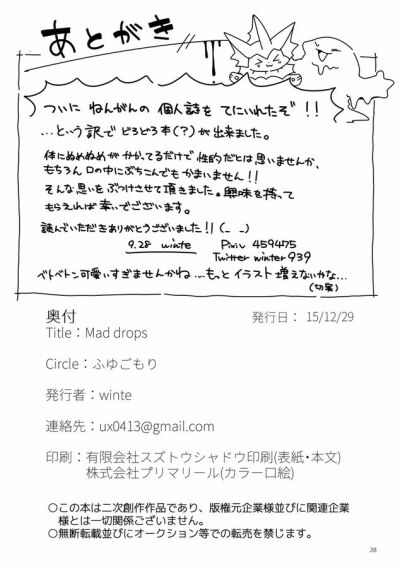 あとがき
ついに ねんがんの 個人誌を てにいれたぞ!!
…という訳で どろどろ本(?)が出来ました。
体にぬめぬめが かかってるだけで性的だとは思いませんか、
もちろん口の中にぶちこんでもかまいません!!
そんな思いをぶつけさせて頂きました。興味を持って
もらえれば幸いでございます。
読んでいただきありがとうございました!!(_ _)
9.28 winte Pixiv 459475
Twitter winter939
ベトベトン可愛いすぎませんかね…もっとイラスト増えないかな…
(切実)
奥付 発行日: 15/12/29
Title:Mad drops
Circle:ふゆごもり
発行者:winte
連絡先:ux0413@gmail.com
印刷:有限会社スズトウシャドウ印刷(表紙・本文)
株式会社プリマリール(カラー口絵)
○この本は二次創作作品であり、版権元企業様並びに関連企業
様とは一切関係ございません。
○無断転載並びにオークション等での転売を禁じます。
28